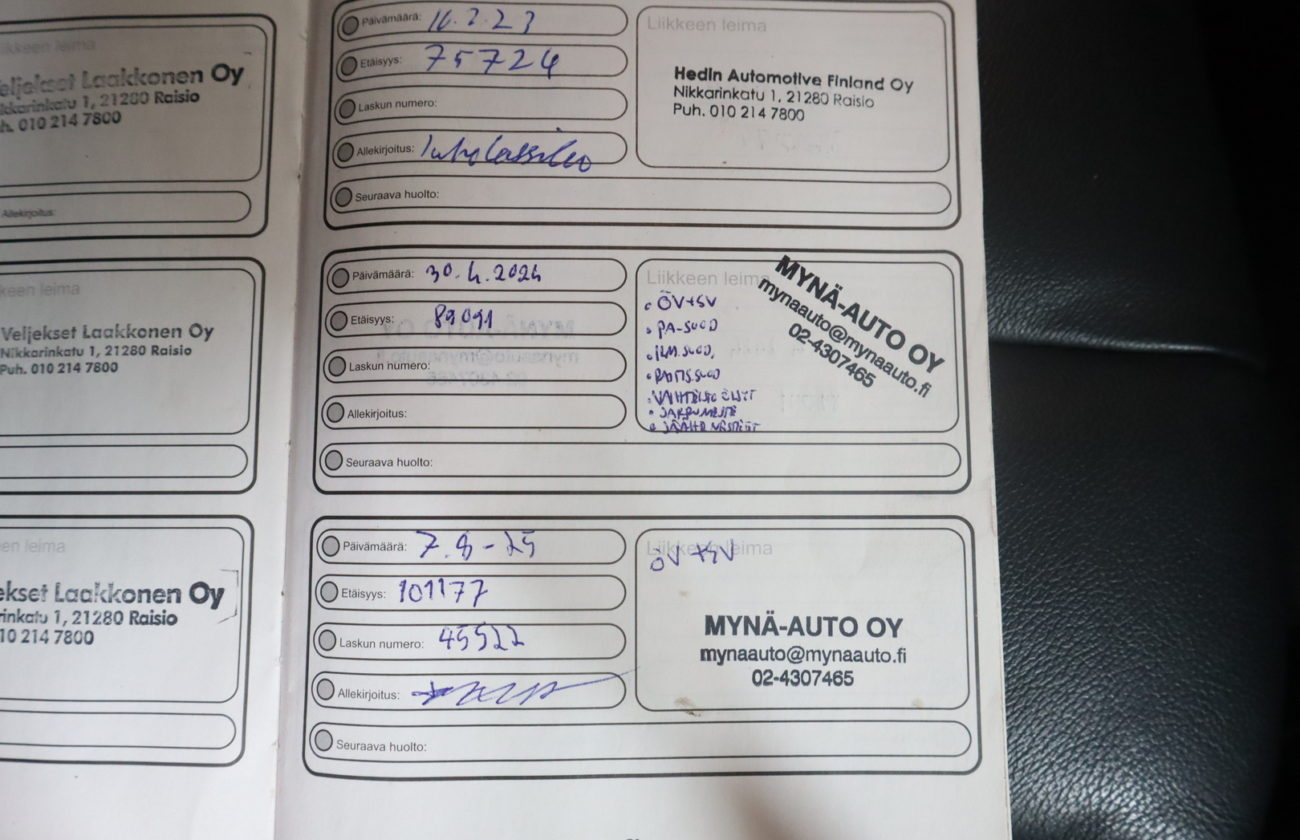 Liikkeen leima
Veljekset Laakkonen Oy
Nikkarinkatu 1, 21280 Raisio
Puh. 010 214 7800
Allekirjoitus:
keen leima
Veljekset Laakkonen Oy
Nikkarinkatu 1, 21280 Raisio
Puh. 010 214 7800
en leima
ekset Laakkonen Oy
rinkatu 1, 21280 Raisio
10 214 7800
Päivämäärä:
Etäisyys: 75724
Laskun numero:
Allekirjoitus:
Seuraava huolto:
Liikkeen leima
Hedin Automotive Finland Oy
Nikkarinkatu 1, 21280 Raisio
Puh. 010 214 7800
Päivämäärä: 30.4.2024
Etäisyys: 89091
Laskun numero:
Allekirjoitus:
Seuraava huolto:
Liikkeen leima
• ÖV+SV
• PA-SUOD
• ILM.SUOD,
• RAITIS.SUOD
• JARRUNESTE
MYNÄ-AUTO OY
mynaauto@mynaauto.fi
02-4307465
Päivämäärä: 7.8-25
Etäisyys: 101177
Laskun numero: 45522
Allekirjoitus:
Seuraava huolto:
Liikkeen leima
ÖV+SV
MYNÄ-AUTO OY
mynaauto@mynaauto.fi
02-4307465